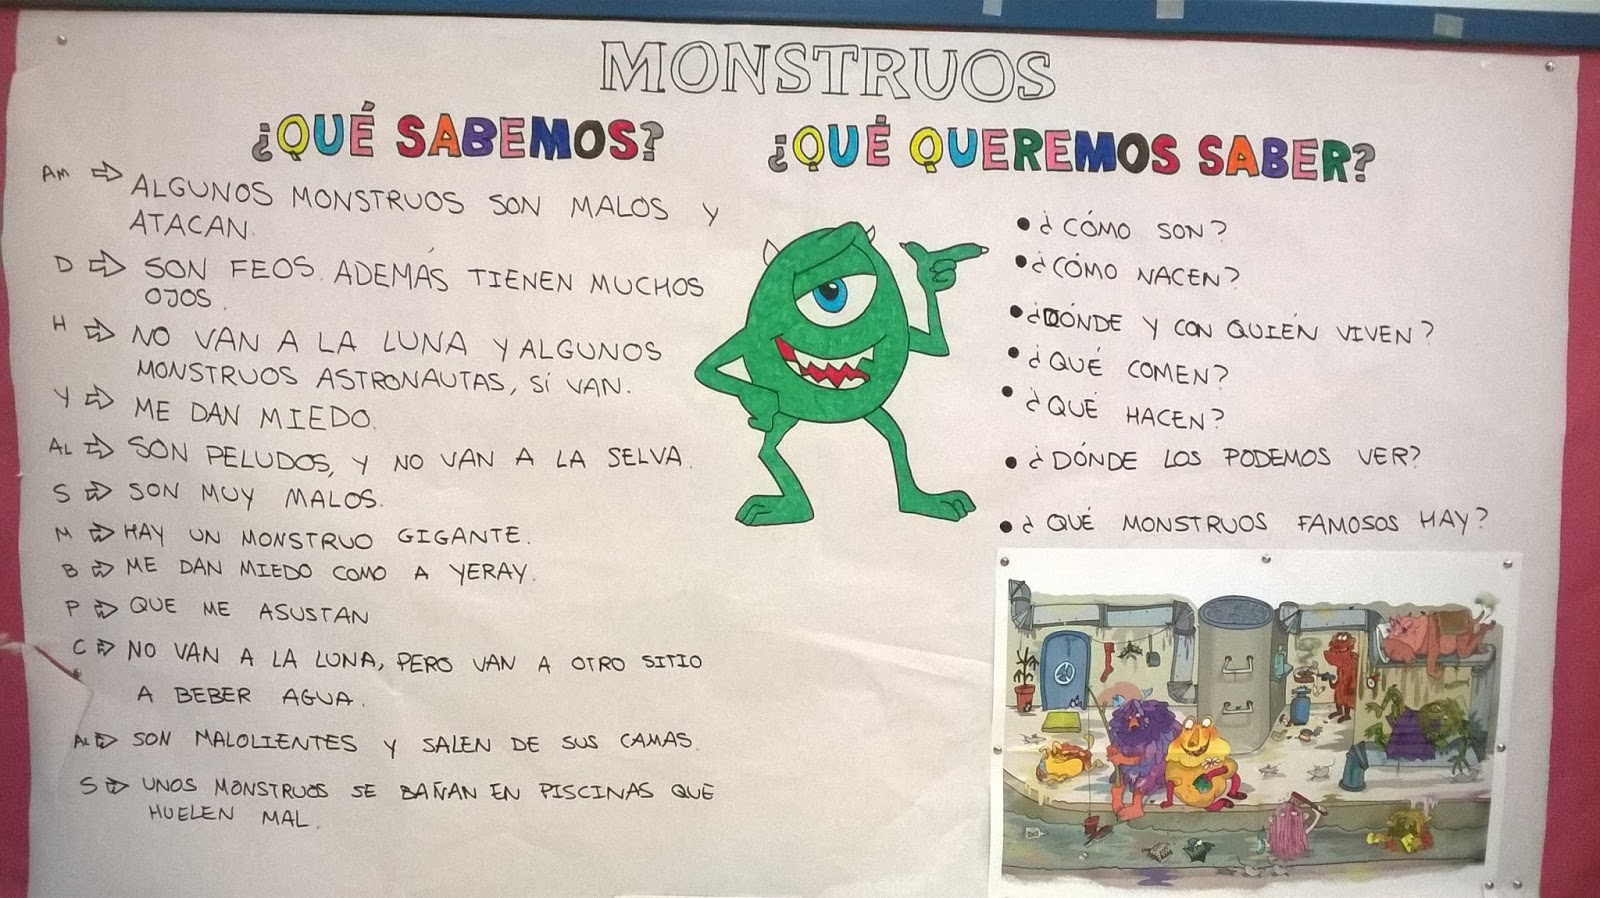 MONSTRUOS
¿QUÉ SABEMOS?
AM ⇨ ALGUNOS MONSTRUOS SON MALOS Y
ATACAN.
D ⇨ SON FEOS. ADEMÁS TIENEN MUCHOS
OJOS.
H ⇨ NO VAN A LA LUNA Y ALGUNOS
MONSTRUOS ASTRONAUTAS, SÍ VAN.
Y ⇨ ME DAN MIEDO.
AL ⇨ SON PELUDOS, Y NO VAN A LA SELVA.
S ⇨ SON MUY MALOS.
M ⇨ HAY UN MONSTRUO GIGANTE.
B ⇨ ME DAN MIEDO COMO A YERAY.
P ⇨ QUE ME ASUSTAN
C ⇨ NO VAN A LA LUNA, PERO VAN A OTRO SITIO
A BEBER AGUA.
AL ⇨ SON MALOLIENTES Y SALEN DE SUS CAMAS.
S ⇨ UNOS MONSTRUOS SE BAÑAN EN PISCINAS QUE
HUELEN MAL.
¿QUÉ QUEREMOS SABER?
• ¿CÓMO SON?
• ¿CÓMO NACEN?
• ¿DÓNDE Y CON QUIÉN VIVEN?
• ¿QUÉ COMEN?
• ¿QUÉ HACEN?
• ¿DÓNDE LOS PODEMOS VER?
• ¿QUÉ MONSTRUOS FAMOSOS HAY?